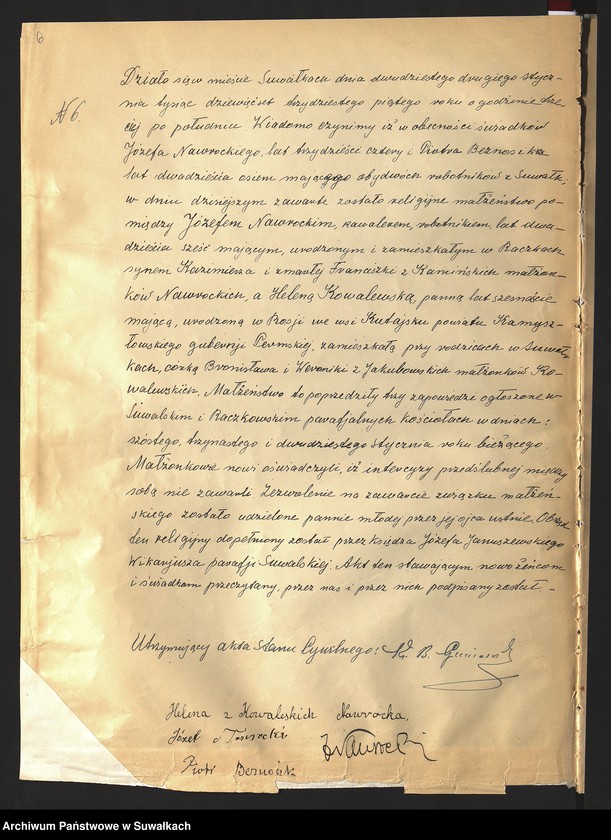 6
Działo się w mieście Suwałkach dnia dwudziestego drugiego stycz-
nia tysiąc dziewięćset trzydziestego piątego roku o godzinie trze-
ciej po południu. Wiadomo czynimy iż w obecności świadków
№ 6.
Józefa Nawrockiego, lat trzydzieści cztery i Piotra Beznoszka
lat dwadzieścia osiem mającego obydwóch robotników z Suwałk,
w dniu dzisiejszym zawarte zostało religijne małżeństwo po-
między Józefem Nawrockim, kawalerem, robotnikiem, lat dwa-
dzieścia sześć mającym, urodzonym i zamieszkałym w Raczkach
synem Kazimierza i zmarłej Franciszki z Kamińskich małżon-
ków Nawrockich, a Heleną Kowalewską, panną lat szesnaście
mającą, urodzoną w Rosji we wsi Kutajsku powiatu Kamysz-
łowskiego gubernji Permskiej, zamieszkałą przy rodzicach w Suwał-
kach, córką Bronisława i Weroniki z Jakubowskich małżonków Ko-
walewskich. Małżeństwo to poprzedziły trzy zapowiedzi ogłoszone w
Suwalskim i Raczkowskim parafjalnych kościołach w dniach:
szóstego, trzynastego i dwudziestego stycznia roku bieżącego.
Małżonkowie nowi oświadczyli, iż intercyzy przedślubnej między
sobą nie zawarli. Zezwolenie na zawarcie związku małżeń-
skiego zostało udzielone pannie młodej przez jej ojca ustnie. Obrzęd
ten religijny dopełniony został przez księdza Józefa Januszewskiego
Wikarjusza parafji Suwalskiej. Akt ten stawającym nowożeńcom
i świadkom przeczytany, przez nas i przez nich podpisany został -
Utrzymujący akta Stanu Cywilnego: Ks. B.
Helena z Kowalewskich Nawrocka,
Józef Nawrocki
Piotr Beznosik
Archiwum Państwowe w Suwałkach